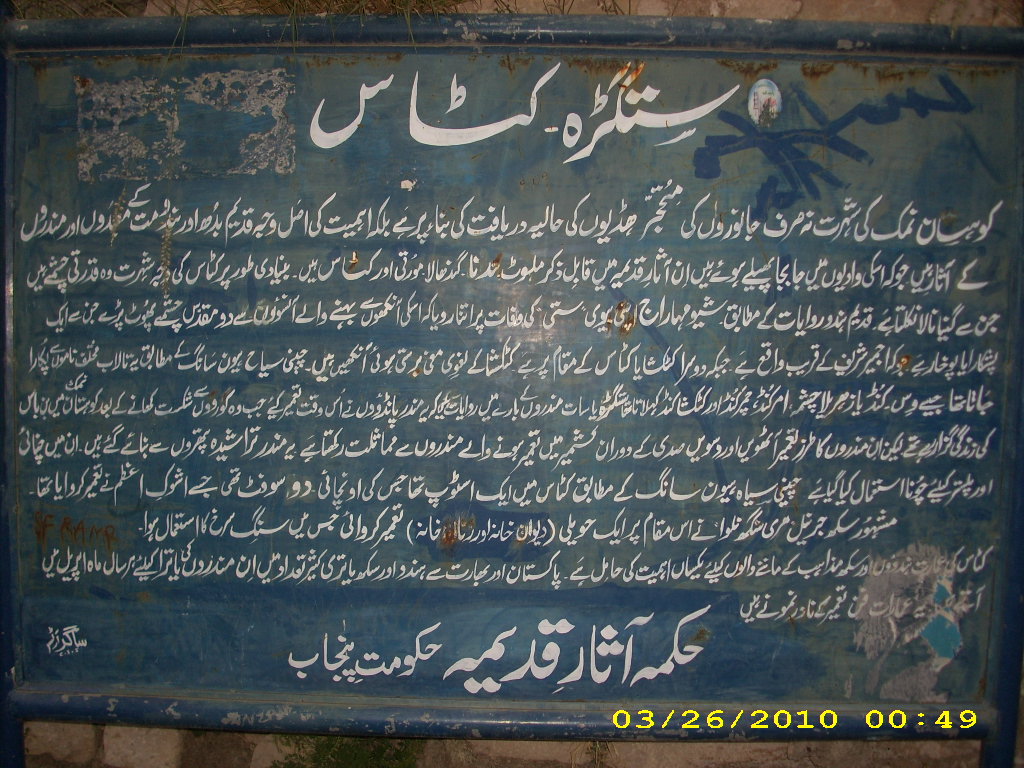 ستگڑہ - کٹاس
کوہستان نمک کی شہرت نہ صرف جانوروں کی متحجر ھڈیوں کی حالیہ دریافت کی بناء پر ہے بلکہ اہمیت کی اصل وجہ قدیم بدھ اور ہندومت کے مندروں اور مندروں
کے آثار ہیں جو کہ اسکی وادیوں میں جا بجا پھیلے ہوئے ہیں ان آثار قدیمہ میں قابل ذکر ملہوٹ نندنا گندھالا مورتی اور کٹاس ہیں۔ بنیادی طور پر کٹاس کی وجہ شہرت وہ قدرتی چشمے ہیں
جن سے گنیا نالا نکلتا ہے۔ قدیم ہندو روایات کے مطابق شیو مہاراج اپنی بیوی ستی کی وفات پر اتنا رویا کہ اسکی آنکھوں سے بہنے والے آنسوؤں سے دو مقدس چشمے پھوٹ پڑے جن سے ایک
پشکارا یا پوخار ہے جو کہ اجمیر شریف کے قریب واقع ہے۔ جبکہ دوسرا کٹکشا یا کٹاس کے مقام پر ہے کٹکشا کے لغوی معنی برستی ہوئی آنکھیں ہیں۔ چینی سیاح ہیون سانگ کے مطابق یہ تالاب مختلف ناموں سے پکارا
جاتا تھا جیسے وس۔ کنڈ یا زہریلا چشمہ، امر کنڈ، چمر کنڈ اور کٹکشا کنڈ کہلاتا تھا ستگڑہ یا سات مندروں کے بارے میں روایات ہے کہ یہ مندر پانڈوؤں نے اس وقت تعمیر کیئے جب وہ کوروں سے شکست کھانے کے بعد کوہستان نمک میں بن باس
کی زندگی گزار رہے تھے لیکن ان مندروں کا طرز تعمیر آٹھویں اور دسویں صدی کے دوران کشمیر میں تعمیر ہونے والے مندروں سے مماثلت رکھتا ہے یہ مندر تراشیدہ پتھروں سے بنائے گئے ہیں۔ ان میں چنائی
اور پلستر کیلئے چونا استعمال کیا گیا ہے چینی سیاہ ہیون سانگ کے مطابق کٹاس میں ایک اسٹوپہ تھا جس کی اونچائی دو سو فٹ تھی جسے اشوک اعظم نے تعمیر کروایا تھا۔
مشہور سکھ جرنیل ہری سنگھ نلوا نے اس مقام پر ایک حویلی (دیوان خانہ اور زنانہ خانہ) تعمیر کروائی جس میں سنگ سرخ کا استعمال ہوا۔
کٹاس کی ہندوؤں اور سکھ مذاہب کے ماننے والوں کیلئے یکساں اہمیت کی حامل ہے۔ پاکستان اور بھارت سے ہندو اور سکھ یاتری کثیر تعداد میں ان مندروں کی یاترا کیلئے ہر سال ماہ اپریل میں
یہ عمارات فن تعمیر کے نادر نمونے ہیں
محکمہ آثارِ قدیمہ حکومتِ پنجاب
03/26/2010 00:49